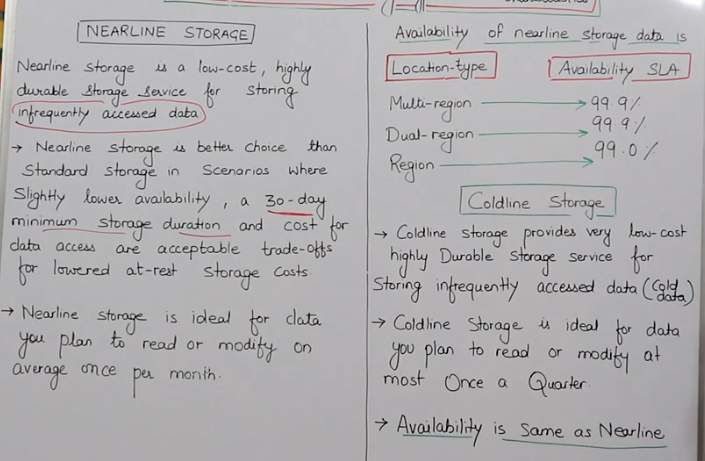 NEARLINE STORAGE
Nearline storage is a low-cost, highly
durable storage service for storing
infrequently accessed data
→ Nearline storage is better choice than
Standard storage in Scenarios where
Slightly lower availability, a 30-day
minimum storage duration and cost for
data access are acceptable trade-offs
for lowered at-rest storage costs.
→ Nearline storage is ideal for data
you plan to read or modify on
average once per month.
Availability of nearline storage data is
Location-type Availability SLA
Multi-region → 99.9%
Dual-region → 99.9%
Region → 99.0%
Coldline Storage
→ Coldline storage provides very low-cost
highly Durable storage service for
Storing infrequently accessed data (Cold
data)
→ Coldline Storage is ideal for data
you plan to read or modify at
most Once a Quarter.
→ Availability is Same as Nearline